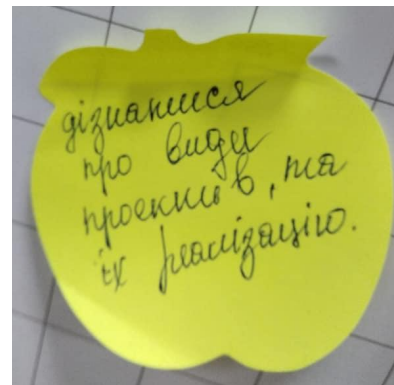 дізнатися
про види
проектів, та
їх реалізацію.